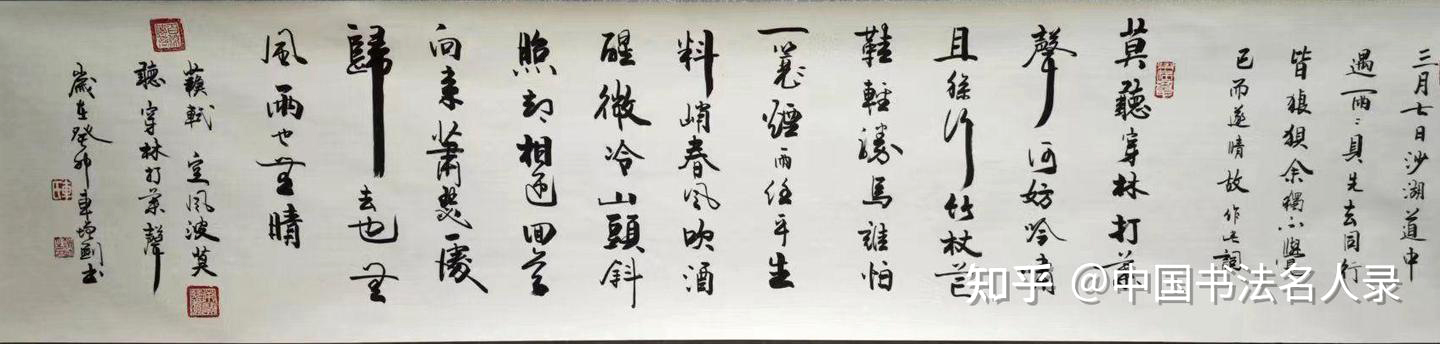 三月七日沙湖道中
遇雨〻具先去同行
皆狼狽余獨不覺
已而遂晴故作此詞
莫聽穿林打葉
聲何妨吟嘯
且徐行竹杖芒
鞋輕勝馬誰怕
一蓑煙雨任平生
料峭春風吹酒
醒微冷山頭斜
照却相迎回首
向来蕭瑟處
歸去也無
風雨也無晴
蘇軾定風波莫
聽穿林打葉聲
歲在癸卯車书
知乎 @中国书法名人录